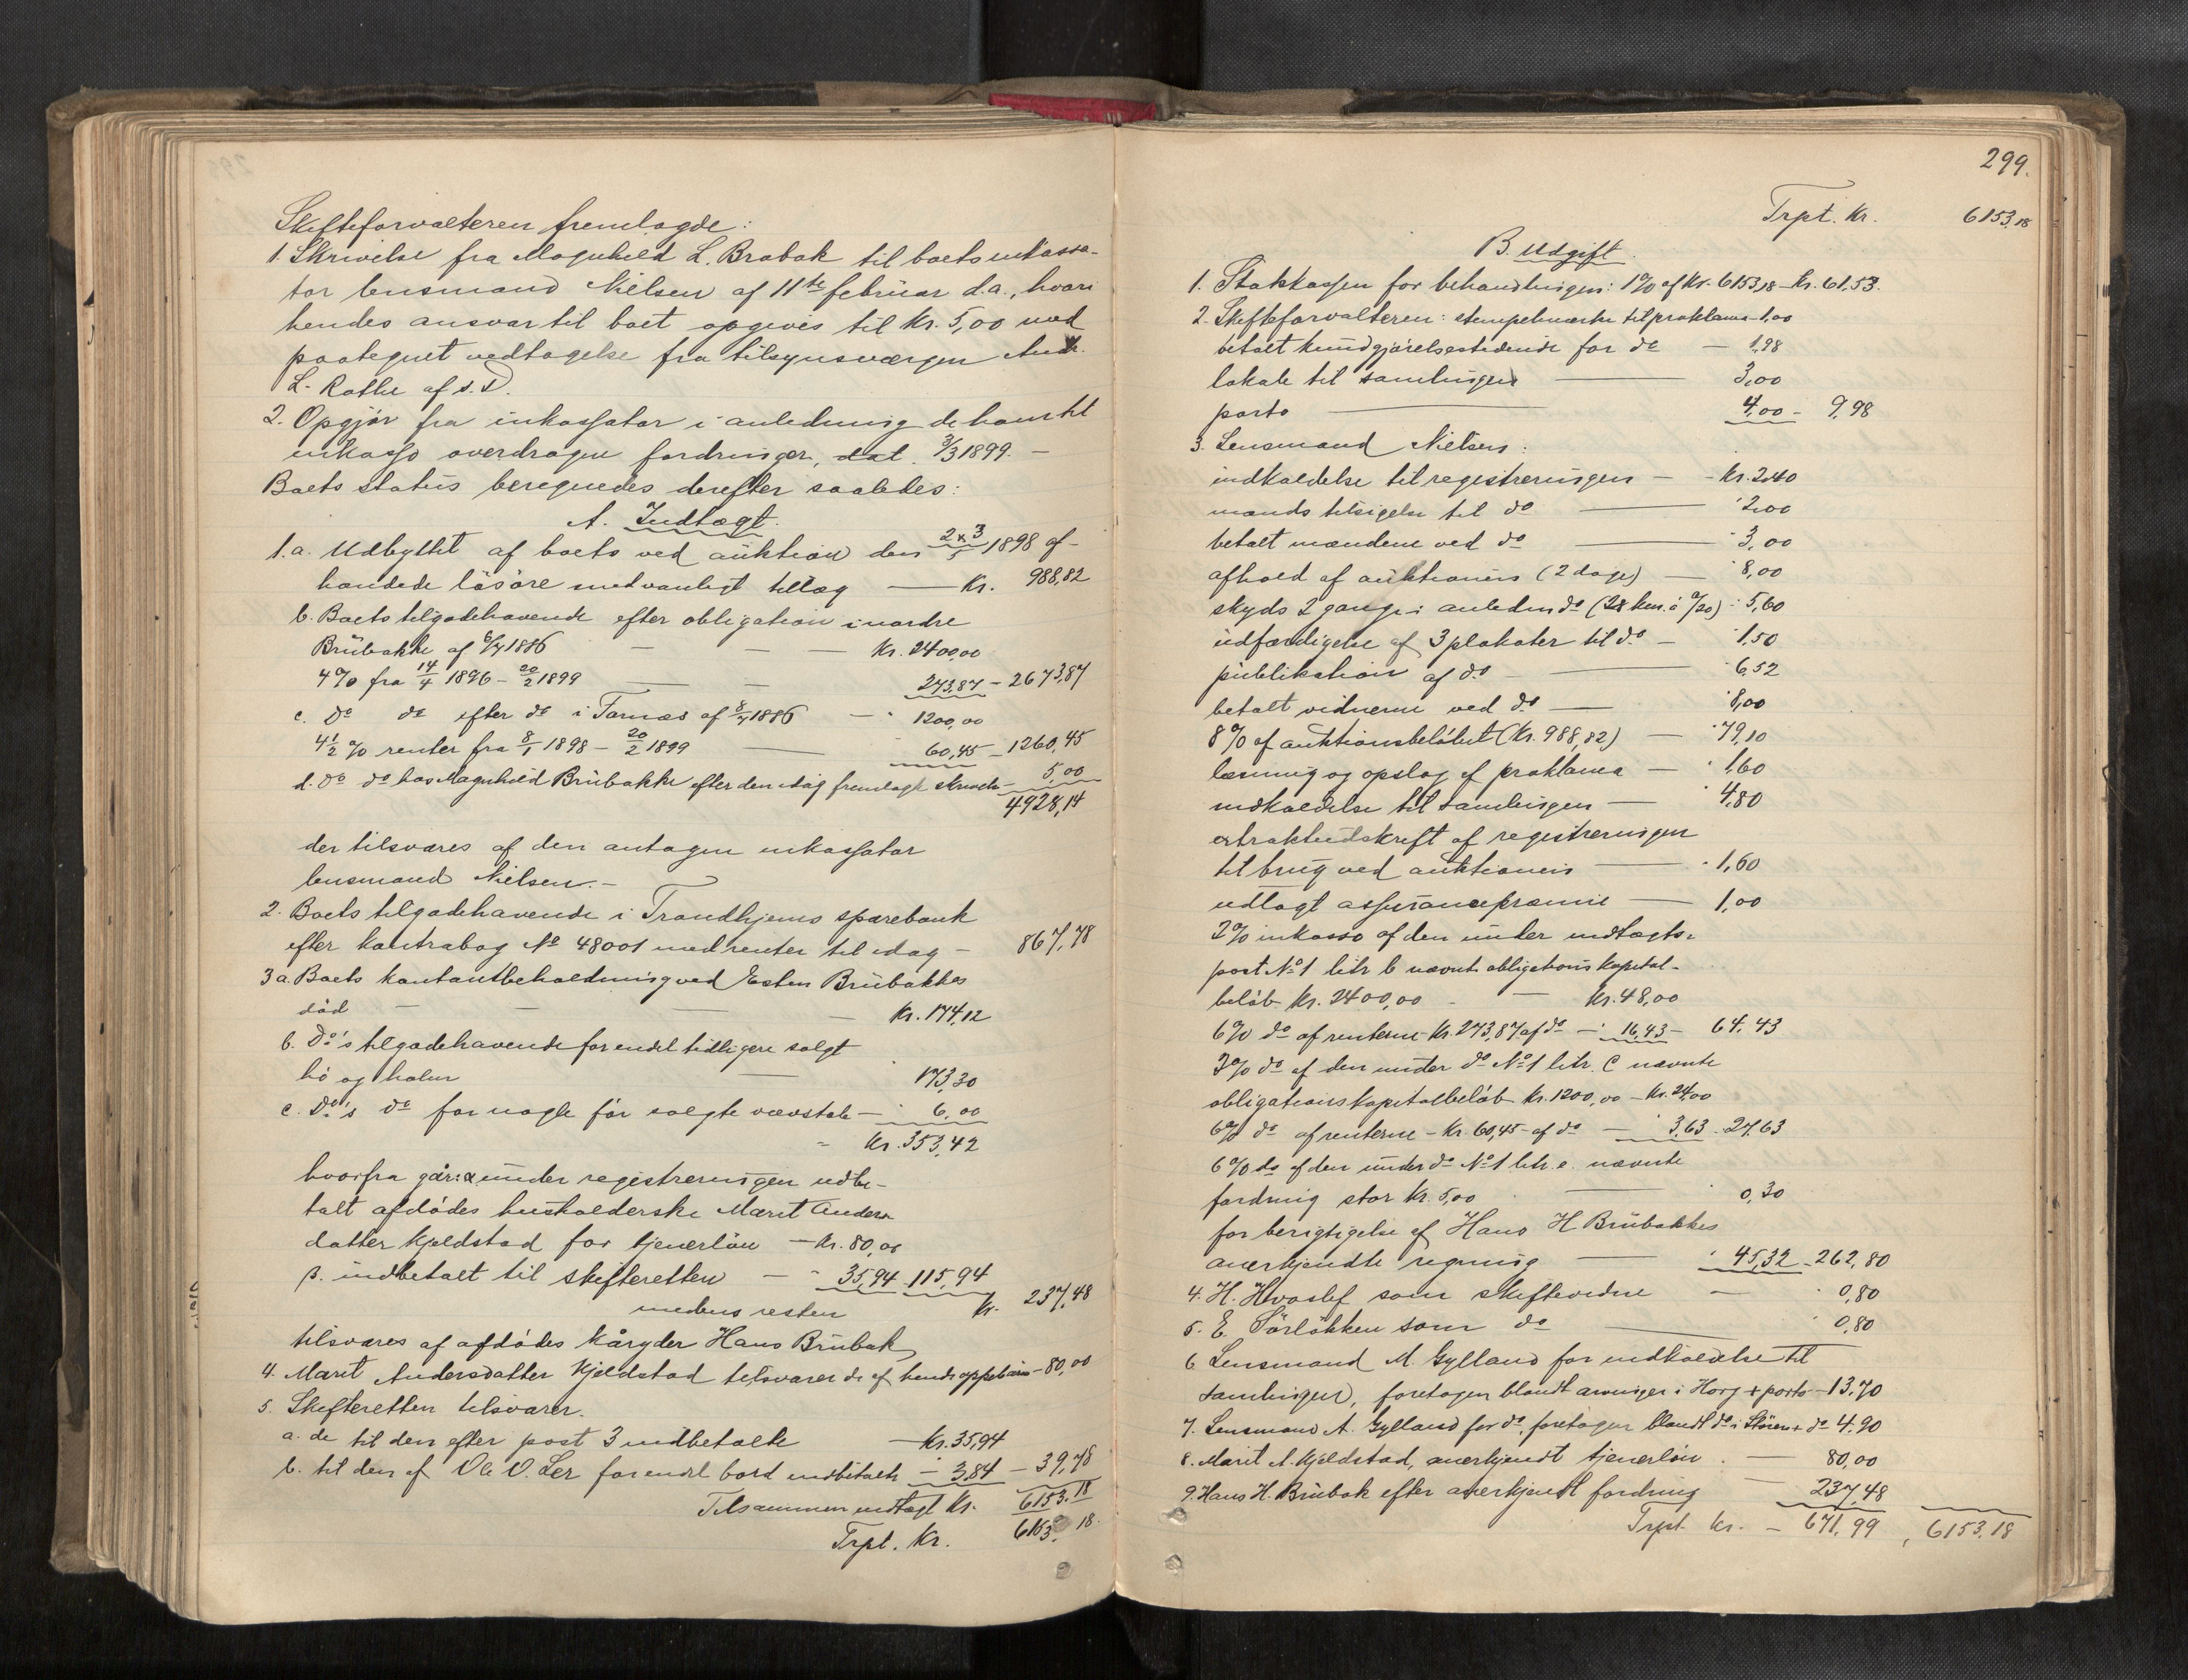 Skifteforvalteren fremlagde:
1. Skrivelse fra Magnhild L. Brubak til boets inkassa-
tor lensmand Nielsen af 11te februar d.a., hvori
hendes ansvar til boet opgives til Kr. 5,00 med
paategnet vedtagelse fra tilsynsværgen And.
L. Rathe af s. D.
2. Opgjör fra inkassator i anledning de ham til
inkasso overdragne fordringer, dat. 3/3 1899. –
Boets status beregnedes derefter saaledes:
A. Indtægt.
1. a. Udbyttet af boets ved auktion den 2 & 3/5 1898 af-
hændede lösöre med vanligt tillæg — Kr. 988,82
b. Boets tilgodehavende efter obligation i nordre
Brubakke af 8/7 1886 — Kr. 2400,00
4% fra 14/4 1896 – 20/2 1899 — 273,87 – 2673,87
c. Do do efter do i Tornæs af 8/7 1886 — " 1200,00
4 1/2 % renter fra 8/1 1898 – 20/2 1899 — 60,45 – 1260,45
d. do do hos Magnhild Brubakke efter den idag fremlagte skrivelse 5,00
4928,14
der tilsvares af den antagne inkassator
lensmand Nielsen. –
2. Boets tilgodehavende i Trondhjems sparebank
efter kontrabog No 48001 med renter til idag – 867,78
3 a. Boets kontantbeholdning ved Esten Brubakkes
död — Kr. 174,12
b. Do's tilgodehavende for endel tidligere solgt
hö og halm — 173,30
c. Do's do for nogle för solgte vævstole — " 6,00
Kr. 353,42
hvorfra går: α. under registreringen udbe-
talt afdödes husholderske Marit Anders
datter Kjeldstad for tjenerlön — Kr. 80,00
β. indbetalt til skifteretten — " 35,94 115,94
medens resten Kr. 237,48
tilsvares af afdödes kåryder Hans Brubak
4. Marit Andersdatter Kjeldstad tilsvarer de af hende oppebårne 80,00
5. Skifteretten tilsvarer.
a. de til den efter post 3 indbetalte — Kr. 35,94
b. til den af Ole O. Ler for endel bord indbetalte — 3,84 – 39,78
Tilsammen indtægt Kr. 6153,18
Trpt. Kr. 6153,18.
299.
Trpt. Kr. 6153,18
B. Udgift.
1. Statskassen for behandlingen: 1% af Kr. 6153,18 – Kr. 61,53.
2. Skifteforvalteren: stempelmærke til proklama – 1,00
betalt kundgjörelsestidende for do — 1,98
lokale til samlingen — 3,00
porto — 4,00 – 9,98
3. Lensmand Nielsen:
indkaldelse til registreringen — Kr. 2,40
mænds tilsigelse til do — " 2,00
betalt mændene ved do — " 3,00
afhold af auktionen (2 dage) — " 8,00
skyds 2 gange i anledn do (28 km. à 0/20) " 5,60
udfærdigelse af 3 plakater til do — " 1,50
publikation af do — " 6,52
betalt vidnerne ved do — " 8,00
8% af auktionsbelöbet (Kr. 988,82) — " 79,10
læsning og opslag af proklama — " 1,60
indkaldelse til samlingen — " 4,80
extraktudskrift af registreringen
til brug ved auktionen — " 1,60
udlagt assurancepræmie — 1,00
2% inkasso af den under indtægts-
post No 1 litr b nævnte obligations kapital-
belöb Kr. 2400,00 — Kr. 48,00
6% do af renterne Kr. 273,87 af do — " 16,43 – 64,43
2% do af den under do No 1 litr. c nævnte
obligationskapitalbelöb Kr. 1200,00 – Kr. 24,00
6% do af renterne – Kr. 60,45 – af do — " 3,63 " 27,63
6% do af den under do No 1 litr. e. nævnte
fordring stor Kr. 5,00 — " 0,30
for berigtigelse af Hans H. Brubakkes
anerkjendte regning — " 45,32 – 262,80
4. H. Hvoslef som skiftevidne — " 0,80
5. E. Sörlökken som do — " 0,80
6. Lensmand M. Gylland for indkaldelse til
samlingen, foretagen blandt arvinger i Horg + porto – 13,70
7. Lensmand A. Gylland for do, foretagen blandt do i Stören + do 4,90
8. Marit A. Kjeldstad, anerkjendt tjenerlön — 80,00
9. Hans H. Brubak efter anerkjendt fordring 237,48
Trpt. Kr. – 671,99 , 6153,18